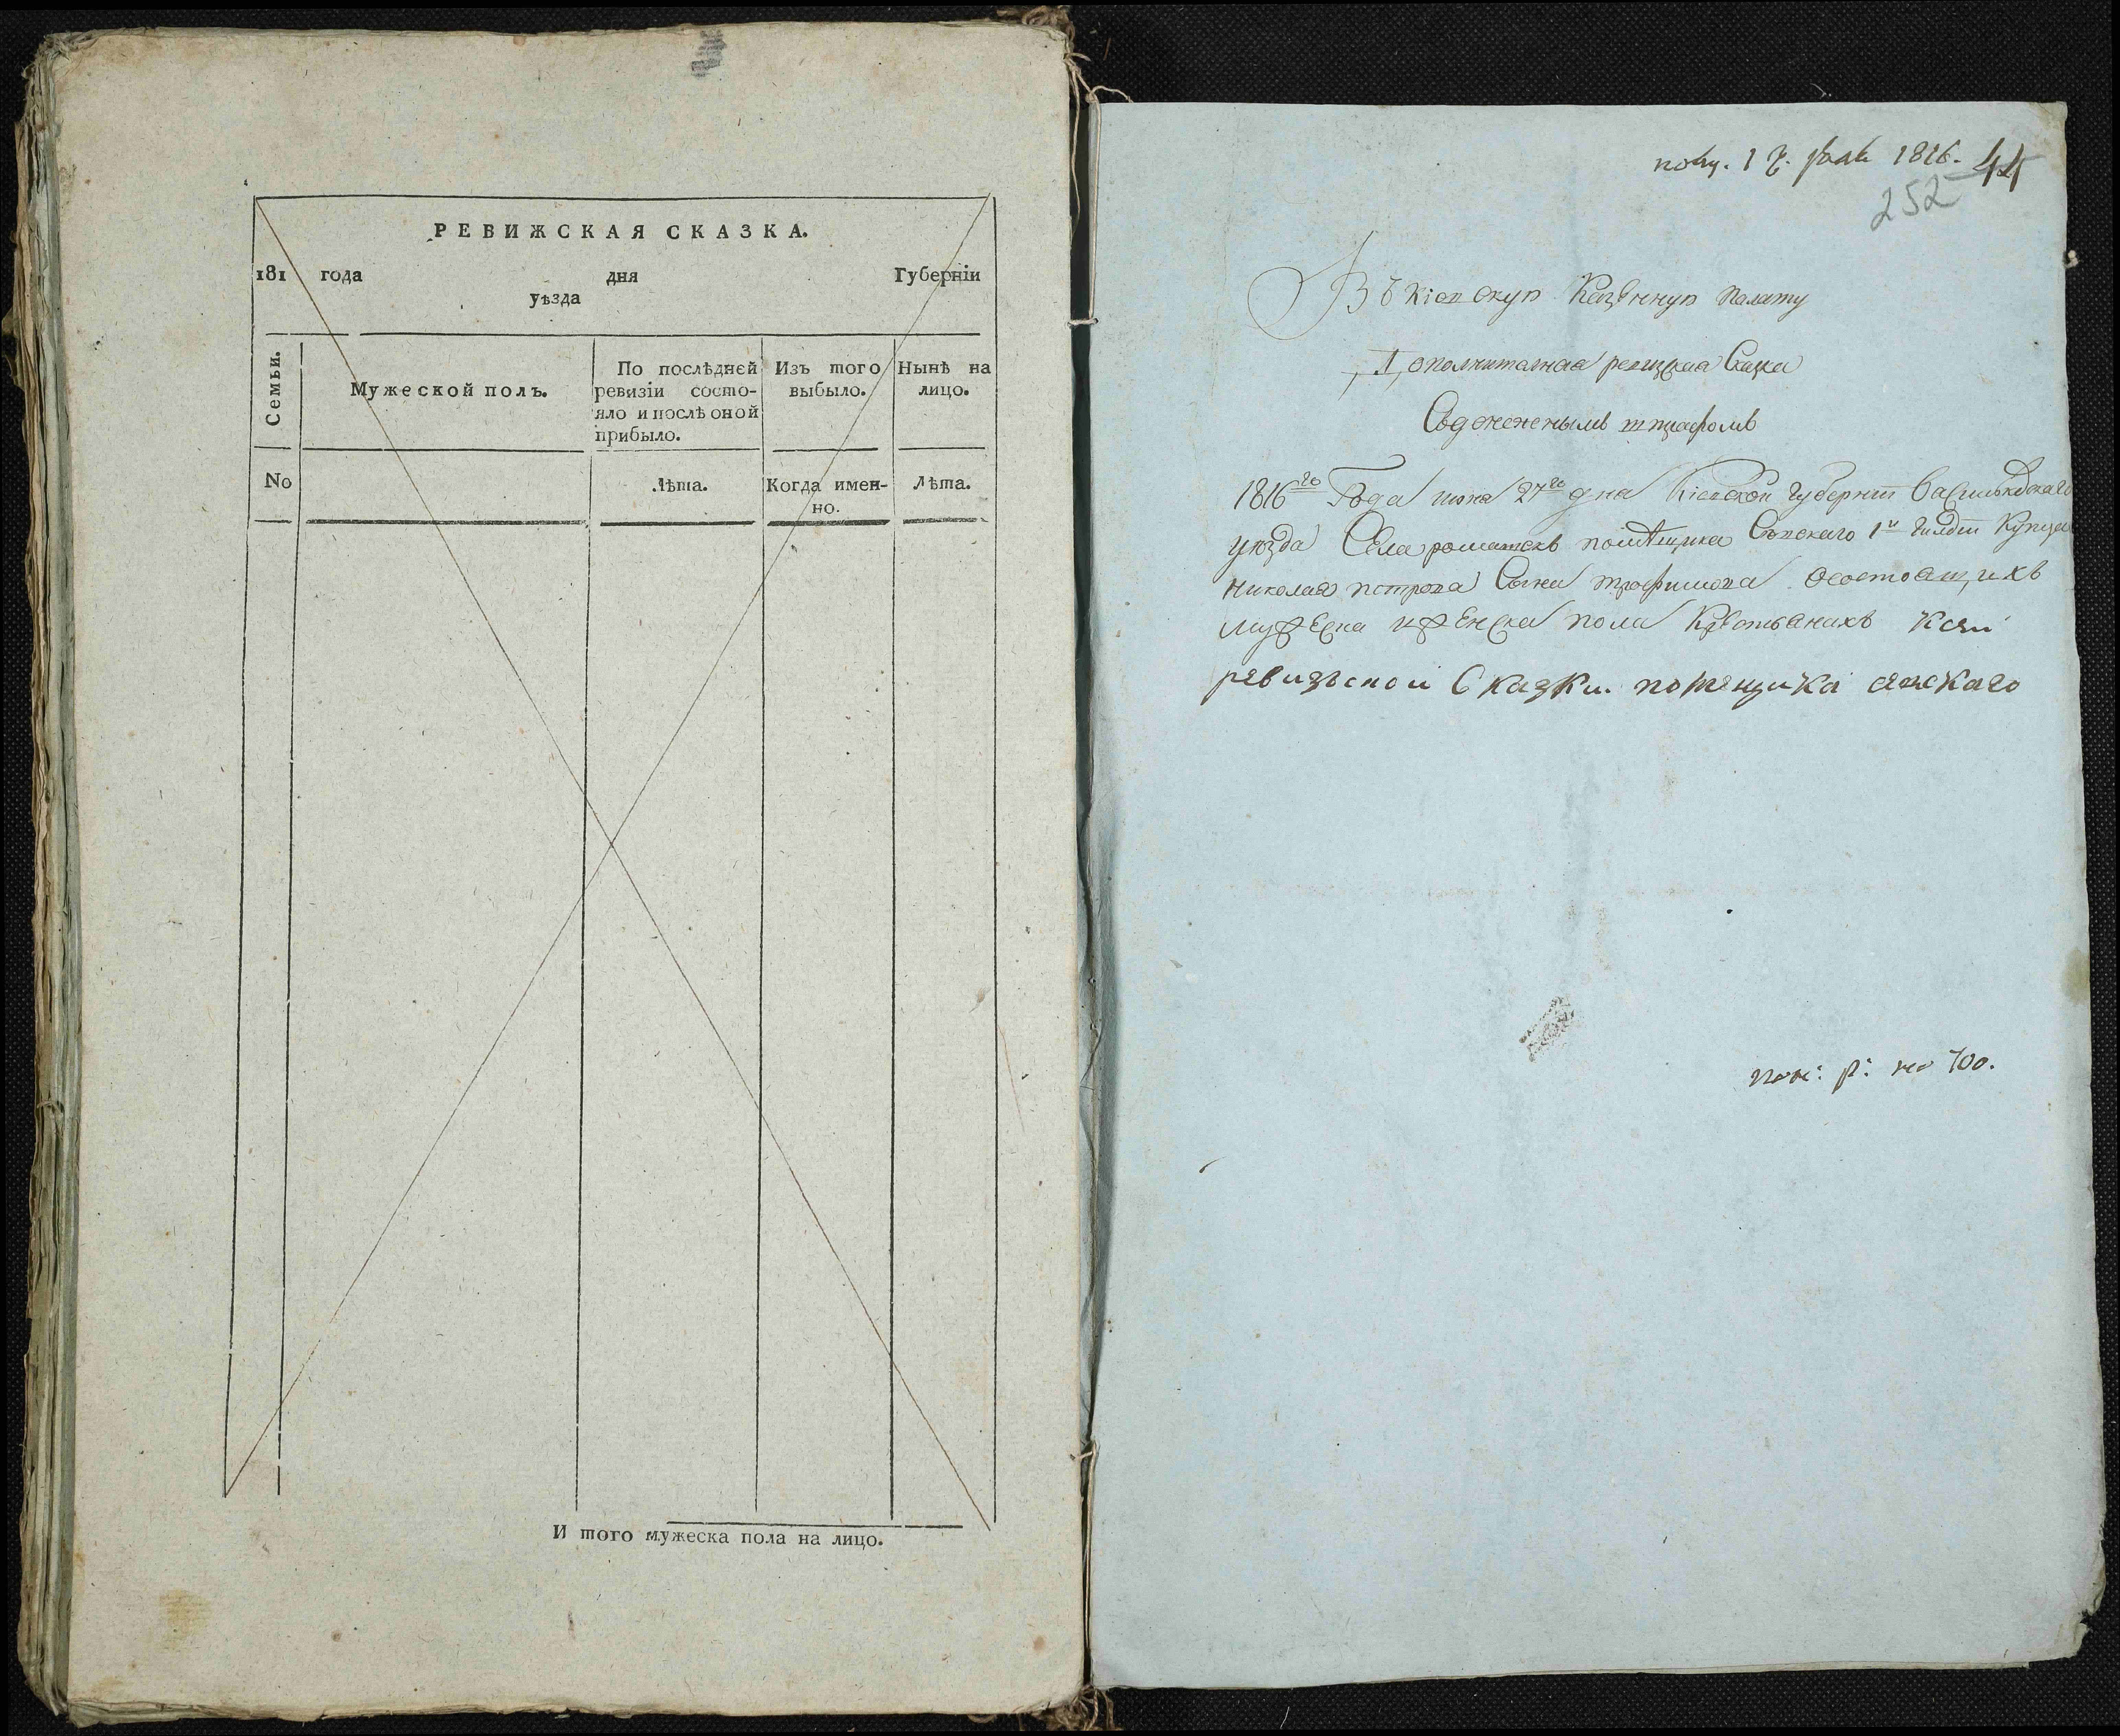 РЕВИЖСКАЯ СКАЗКА.
181 года дня Губерніи
уѣзда
Семьи.
Мужеской полъ.
По послѣдней
ревизіи состо-
яло и послѣ оной
прибыло.
Изъ того
выбыло.
Нынѣ на
лицо.
No
Лѣта.
Когда имен-
но.
Лѣта.
И того мужеска пола на лицо.
1816. 44
252
Въ Кіевскую Казенную палату
Дополнительная ревизская Сказка
штрафомъ
1816го Года июня 27го дня Кіевской губернии Васильковскаго
уезда Села ромашекъ помѣщика 1й гилдии Купца
Николая петрова Сына трофимова состоащихъ
мужеска и женска пола Крестьянахъ Ксей
ревизской Сказки. помещика
по 700.